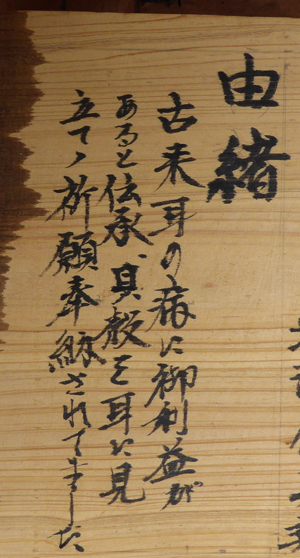 由緒
古来耳の病に御利益が
あると伝承、貝殻を耳に見
立て、祈願奉納されてきました